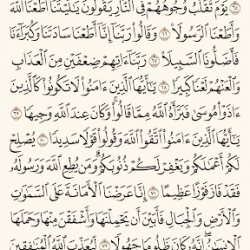 يَوْمَ تُقَلَّبُ وُجُوهُهُمْ فِي ٱلنَّارِ يَقُولُونَ يَٰلَيْتَنَآ أَطَعْنَا ٱللَّهَ
وَأَطَعْنَا ٱلرَّسُولَا۠ ۝٦٦ وَقَالُوا۟ رَبَّنَآ إِنَّآ أَطَعْنَا سَادَتَنَا وَكُبَرَآءَنَا
فَأَضَلُّونَا ٱلسَّبِيلَا۠ ۝٦٧ رَبَّنَآ ءَاتِهِمْ ضِعْفَيْنِ مِنَ ٱلْعَذَابِ
وَٱلْعَنْهُمْ لَعْنًا كَبِيرًا ۝٦٨ يَٰٓأَيُّهَا ٱلَّذِينَ ءَامَنُوا۟ لَا تَكُونُوا۟ كَٱلَّذِينَ
ءَاذَوْا۟ مُوسَىٰ فَبَرَّأَهُ ٱللَّهُ مِمَّا قَالُوا۟ وَكَانَ عِندَ ٱللَّهِ وَجِيهًا ۝٦٩
يَٰٓأَيُّهَا ٱلَّذِينَ ءَامَنُوا۟ ٱتَّقُوا۟ ٱللَّهَ وَقُولُوا۟ قَوْلًا سَدِيدًا ۝٧٠ يُصْلِحْ
لَكُمْ أَعْمَٰلَكُمْ وَيَغْفِرْ لَكُمْ ذُنُوبَكُمْ وَمَن يُطِعِ ٱللَّهَ وَرَسُولَهُۥ
فَقَدْ فَازَ فَوْزًا عَظِيمًا ۝٧١ إِنَّا عَرَضْنَا ٱلْأَمَانَةَ عَلَى ٱلسَّمَٰوَٰتِ
وَٱلْأَرْضِ وَٱلْجِبَالِ فَأَبَيْنَ أَن يَحْمِلْنَهَا وَأَشْفَقْنَ مِنْهَا وَحَمَلَهَا
ٱلْإِنسَٰنُ إِنَّهُۥ كَانَ ظَلُومًا جَهُولًا ۝٧٢ لِّيُعَذِّبَ ٱللَّهُ ٱلْمُنَٰفِقِينَ